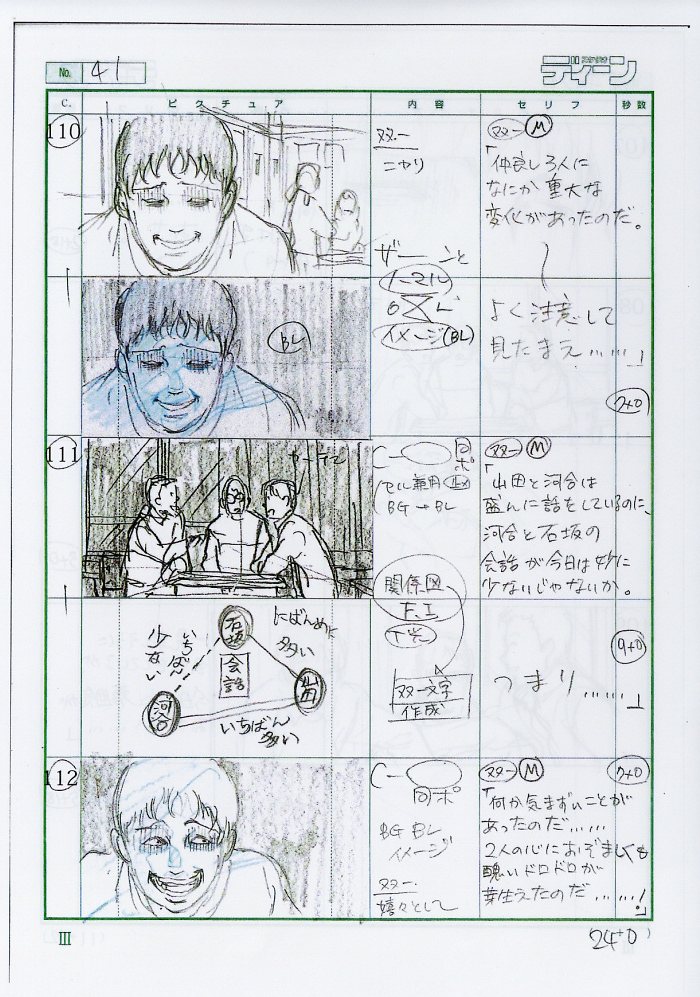 No. 41
ディーン
C. ピクチュア 内容 セリフ 秒数
110
双一
ニヤリ
双一 M
「仲良し3人に
なにか重大な
変化があったのだ。
ザーーンと
ノーマル
O.L
イメージ(BL)
BL
よく注意して
見たまえ……」
7+0
111
カーテン
C-
同ポ
セル兼用
BG→BL
双一 M
「山田と河合は
盛んに話をしているのに、
河合と石坂の
会話が今日は妙に
少ないじゃないか。
関係図
F.I
T光
双一文字
作成
石坂
会話
山田
河合
にばんめに
多い
いちばん
少ない
いちばん
多い
9+0
つまり……」
112
C-
同ポ
BG BL
イメージ
双一
嬉々として
双一 M
7+0
「何か気まずいことが
あったのだ……
2人の心におぞましくも
醜いドロドロが
芽生えたのだ……!」
III
24+0